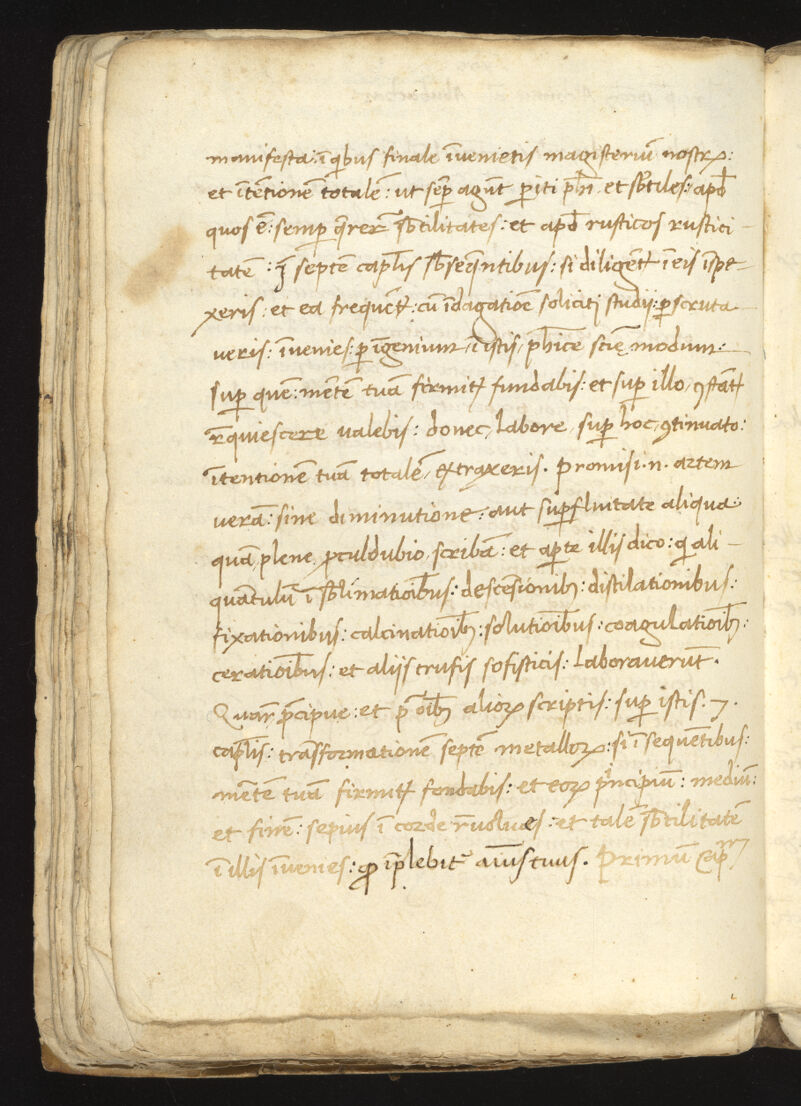 manifesta: ī q̄ibus finale īvenietis magisteriū nostrꝝ:
et ītētionē totalē: ut sēp agūt piti ph̄i. et sb̄tiles: apd̄
quos ē: semp q̄rer̄ sb̄tilitates: et apd̄ rusticos rustici-
tatē: septē capl̄is sb̄seq̄ntibus: si diligēt̄ ī eis īspe-
xeris: et ea frequēt̄: cū īdagatiōe soliciti studij: pscruta-
veris: īvenies: p īgenium ī istis ph̄ice sciē modum:
sup quē: mētē tuā firmit̄ fundabis: et sup illo, ꝯstāt̄
r̄quiescere valebis: donec, labore, sup hoc, ꝯtinuato:
ītentionē tuā totalē, extraxeris. Promisi .n. artem
verā: sine diminutione: aut supfluitate aliqua:
quā plene, pculdubio, scribā: et apte illis dico: qi ali-
quātulū ī sb̄limatiōibus: descēsionibꝫ: distilationibus:
fixationibus: calcinatiōibꝫ: solutiōibus: coagulatiōibꝫ:
ceratiōibus: et aliis trufis sofisticis: laboraverūt.
Quar̄ p̄cipue: et p̄ oībꝫ aliorꝝ scriptis: sup istis .7.
capl̄is: trāsformationē septē metallorꝝ: si ī sequētibus:
mētē tuā firmit̄ fondabis: et eorꝝ p̄ncipiū: mediū:
et finē: sepius ī corde r̄volves: et talē sb̄tilitatē
ī illis īvenies: ꝙ īplebit̄ aīus tuus. Primū cap̄m